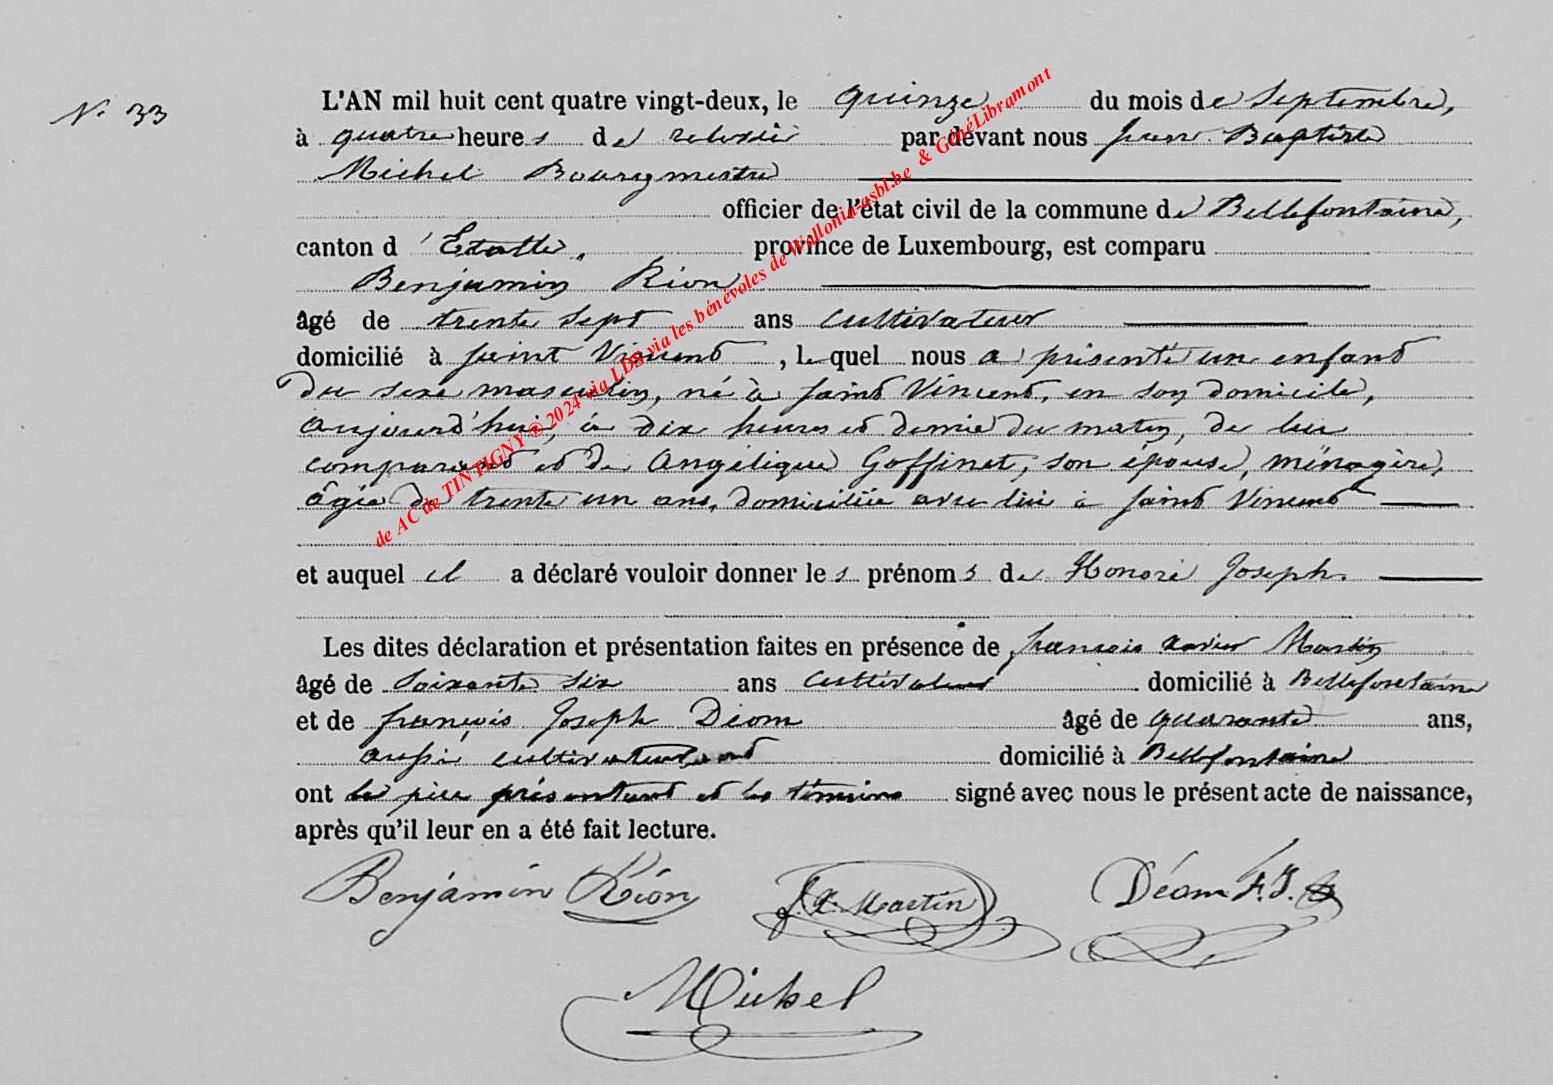 N° 33
L'AN mil huit cent quatre vingt-deux, le quinze du mois de Septembre,
à quatre heures de relevée par devant nous Jean Baptiste
Michel Bourgmestre
officier de l'état civil de la commune de Bellefontaine,
canton d'Etalle, province de Luxembourg, est comparu
Benjamin Rion
âgé de trente sept ans cultivateur
domicilié à Saint Vincent, lequel nous a présenté un enfant
du sexe masculin, né à Saint Vincent, en son domicile,
aujourd'hui, à dix heures et demie du matin, de lui
comparant et de Angélique Goffinet, son épouse, ménagère,
âgée de trente un ans, domiciliée avec lui à Saint Vincent
et auquel il a déclaré vouloir donner les prénoms de Honoré Joseph.
Les dites déclaration et présentation faites en présence de françois xavier Martin
âgé de Soixante six ans cultivateur domicilié à Bellefontaine
et de françois Joseph Déom âgé de quarante ans,
aussi cultivateur domicilié à Bellefontaine
ont le père présentant et les témoins signé avec nous le présent acte de naissance,
après qu'il leur en a été fait lecture.
Benjamin Rion f. x. Martin Déom F. J.
Michel
de AC de TINTIGNY ® 2024 via LDS via les bénévoles de Wallonia-asbl.be & GénéLibramont